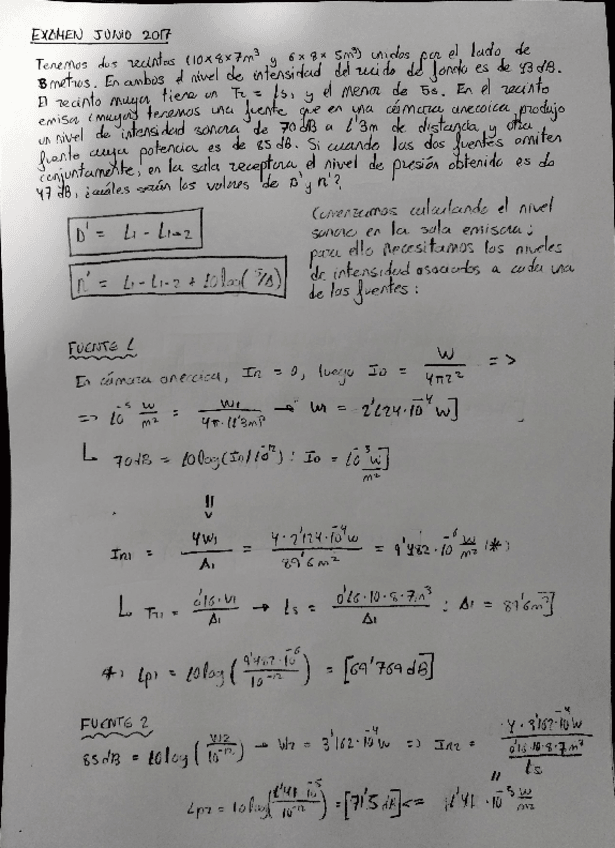 EXAMEN JUNIO 2017
Tenemos dos recintos (10x8x7m³ y 6x8x5m³) unidos por el lado de
8 metros. En ambos el nivel de intensidad del ruido de fondo es de 43 dB.
El recinto mayor tiene un Tr = 1s, y el menor de 5s. En el recinto
emisor (mayor) tenemos una fuente que en una cámara anecoica produjo
un nivel de intensidad sonora de 70 dB a 1'3m de distancia y otra
fuente cuya potencia es de 85 dB. Si cuando las dos fuentes emiten
conjuntamente, en la sala receptora el nivel de presión obtenido es de
47 dB, ¿cuáles serán los valores de D' y n'?
D' = L1 - L1-2
n' = L1 - L1-2 + 10log(
Comenzamos calculando el nivel
sonoro en la sala emisora;
para ello necesitamos los niveles
de intensidad asociados a cada una
de las fuentes:
FUENTE 1
En cámara anecoica, IR = 0, luego ID = W / 4πr² =>
=> 10⁻⁵ W/m² = W1 / 4π·(1'3m)² → W1 = 2'124·10⁻⁴ W]
70 dB = 10log(ID/10⁻¹²) : ID = 10⁻⁵ W/m²]
IR1 = 4W1 / A1 = 4·2'124·10⁻⁴ W / 89'6 m² = 9'482·10⁻⁶ W/m² (*)
TR1 = 0'16·V1 / A1 → 1s = 0'16·10·8·7m³ / A1 : A1 = 89'6m²]
*) Lp1 = 10log(9'482·10⁻⁶ / 10⁻¹²) = [69'769 dB]
FUENTE 2
85 dB = 10log(W2 / 10⁻¹²) → W2 = 3'162·10⁻⁴ W => IR2 = 4·3'162·10⁻⁴ W / (0'16·10·8·7m³ / 1s)
Lp2 = 10log(1'41·10⁻⁵ / 10⁻¹²) = [71'5 dB] <= 1'41·10⁻⁵ W/m²